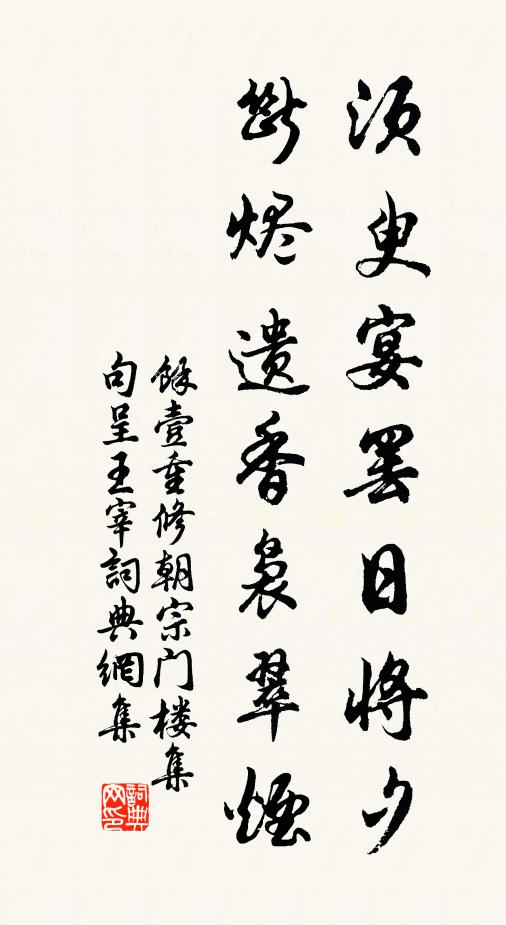 须臾宴罢日将夕
断烬遗香袅翠烟
馀壹重修朝宗门楼集
句呈王宰詞典網集
詞典网印